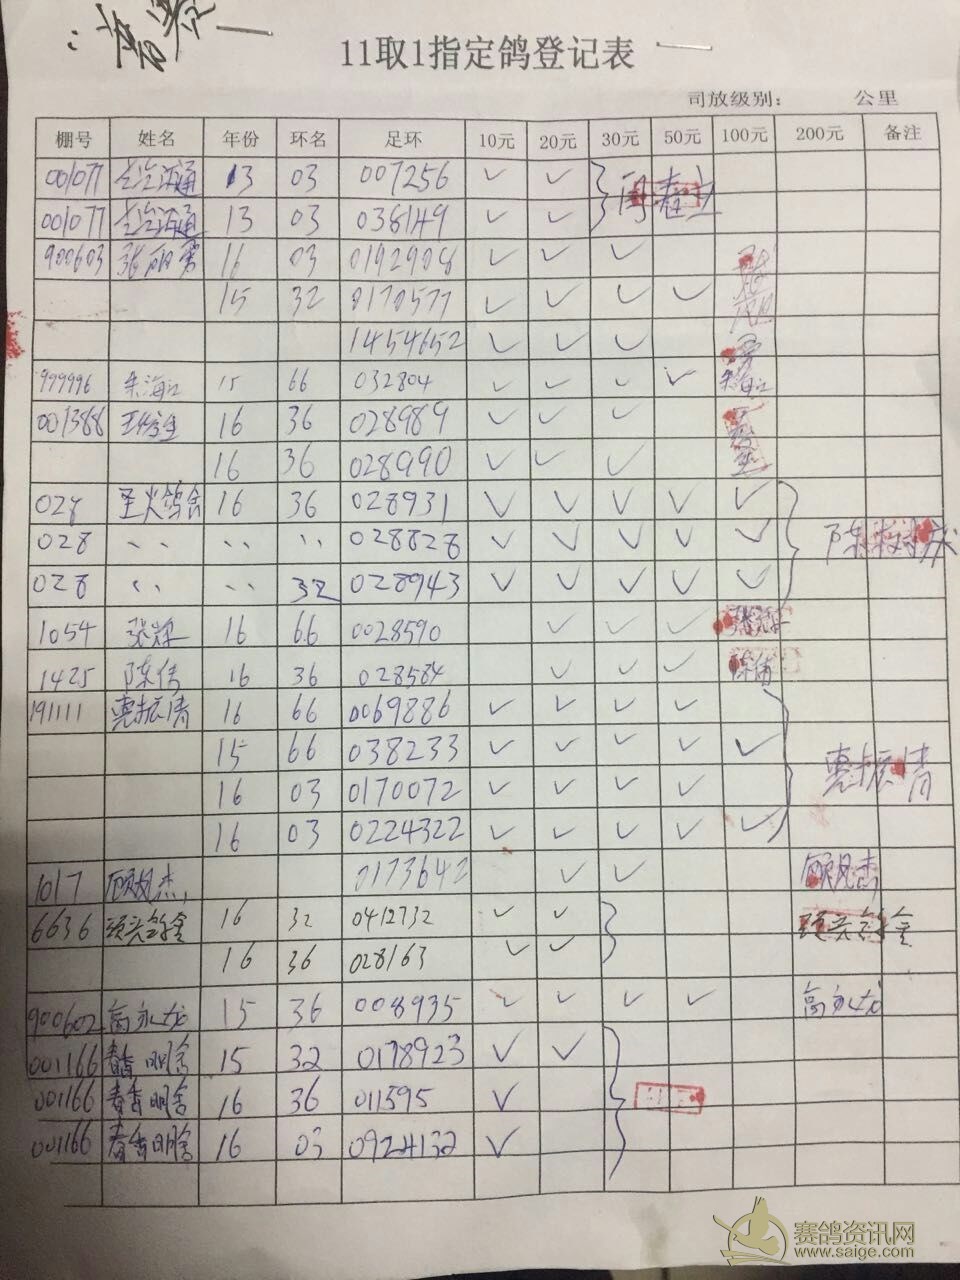 11取1指定鸽登记表
司放级别: 公里
棚号 姓名 年份 环名 足环 10元 20元 30元 50元 100元 200元 备注
001077 13 03 007256 ✓ ✓
001077 13 03 038149 ✓ ✓
900603 张丽勇 16 03 0192908 ✓ ✓ ✓
15 32 0170577 ✓ ✓ ✓ ✓
1454652 ✓ ✓ ✓
999996 朱海江 15 66 032804 ✓ ✓ ✓ ✓ 朱海江
001388 16 36 028989 ✓ ✓ ✓
16 36 028990 ✓ ✓ ✓
028 圣火鸽舍 16 36 028931 ✓ ✓ ✓ ✓ ✓
028 、、 、、 、、 028828 ✓ ✓ ✓ ✓ ✓ 陈树成
028 、、 、、 32 028943 ✓ ✓ ✓ ✓ ✓
1054 16 66 0028590 ✓ ✓ ✓
1425 陈倩 16 36 028584 ✓ ✓ ✓ 陈倩
191111 惠振清 16 66 0069886 ✓ ✓ ✓ ✓
15 66 038233 ✓ ✓ ✓ ✓ ✓ 惠振清
16 03 0170072 ✓ ✓ ✓ ✓
16 03 0224322 ✓ ✓ ✓ ✓ ✓
1017 顾凤杰 0173642 ✓ ✓ 顾凤杰
6636 16 32 0412732 ✓ ✓
16 36 028163 ✓ ✓
900602 高永龙 15 36 008935 ✓ ✓ ✓ ✓ 高永龙
001166 春香明舍 15 32 0178923 ✓ ✓
001166 春香明舍 16 36 011595 ✓
001166 春香明舍 16 03 0924132 ✓
赛鸽资讯网
www.saige.com